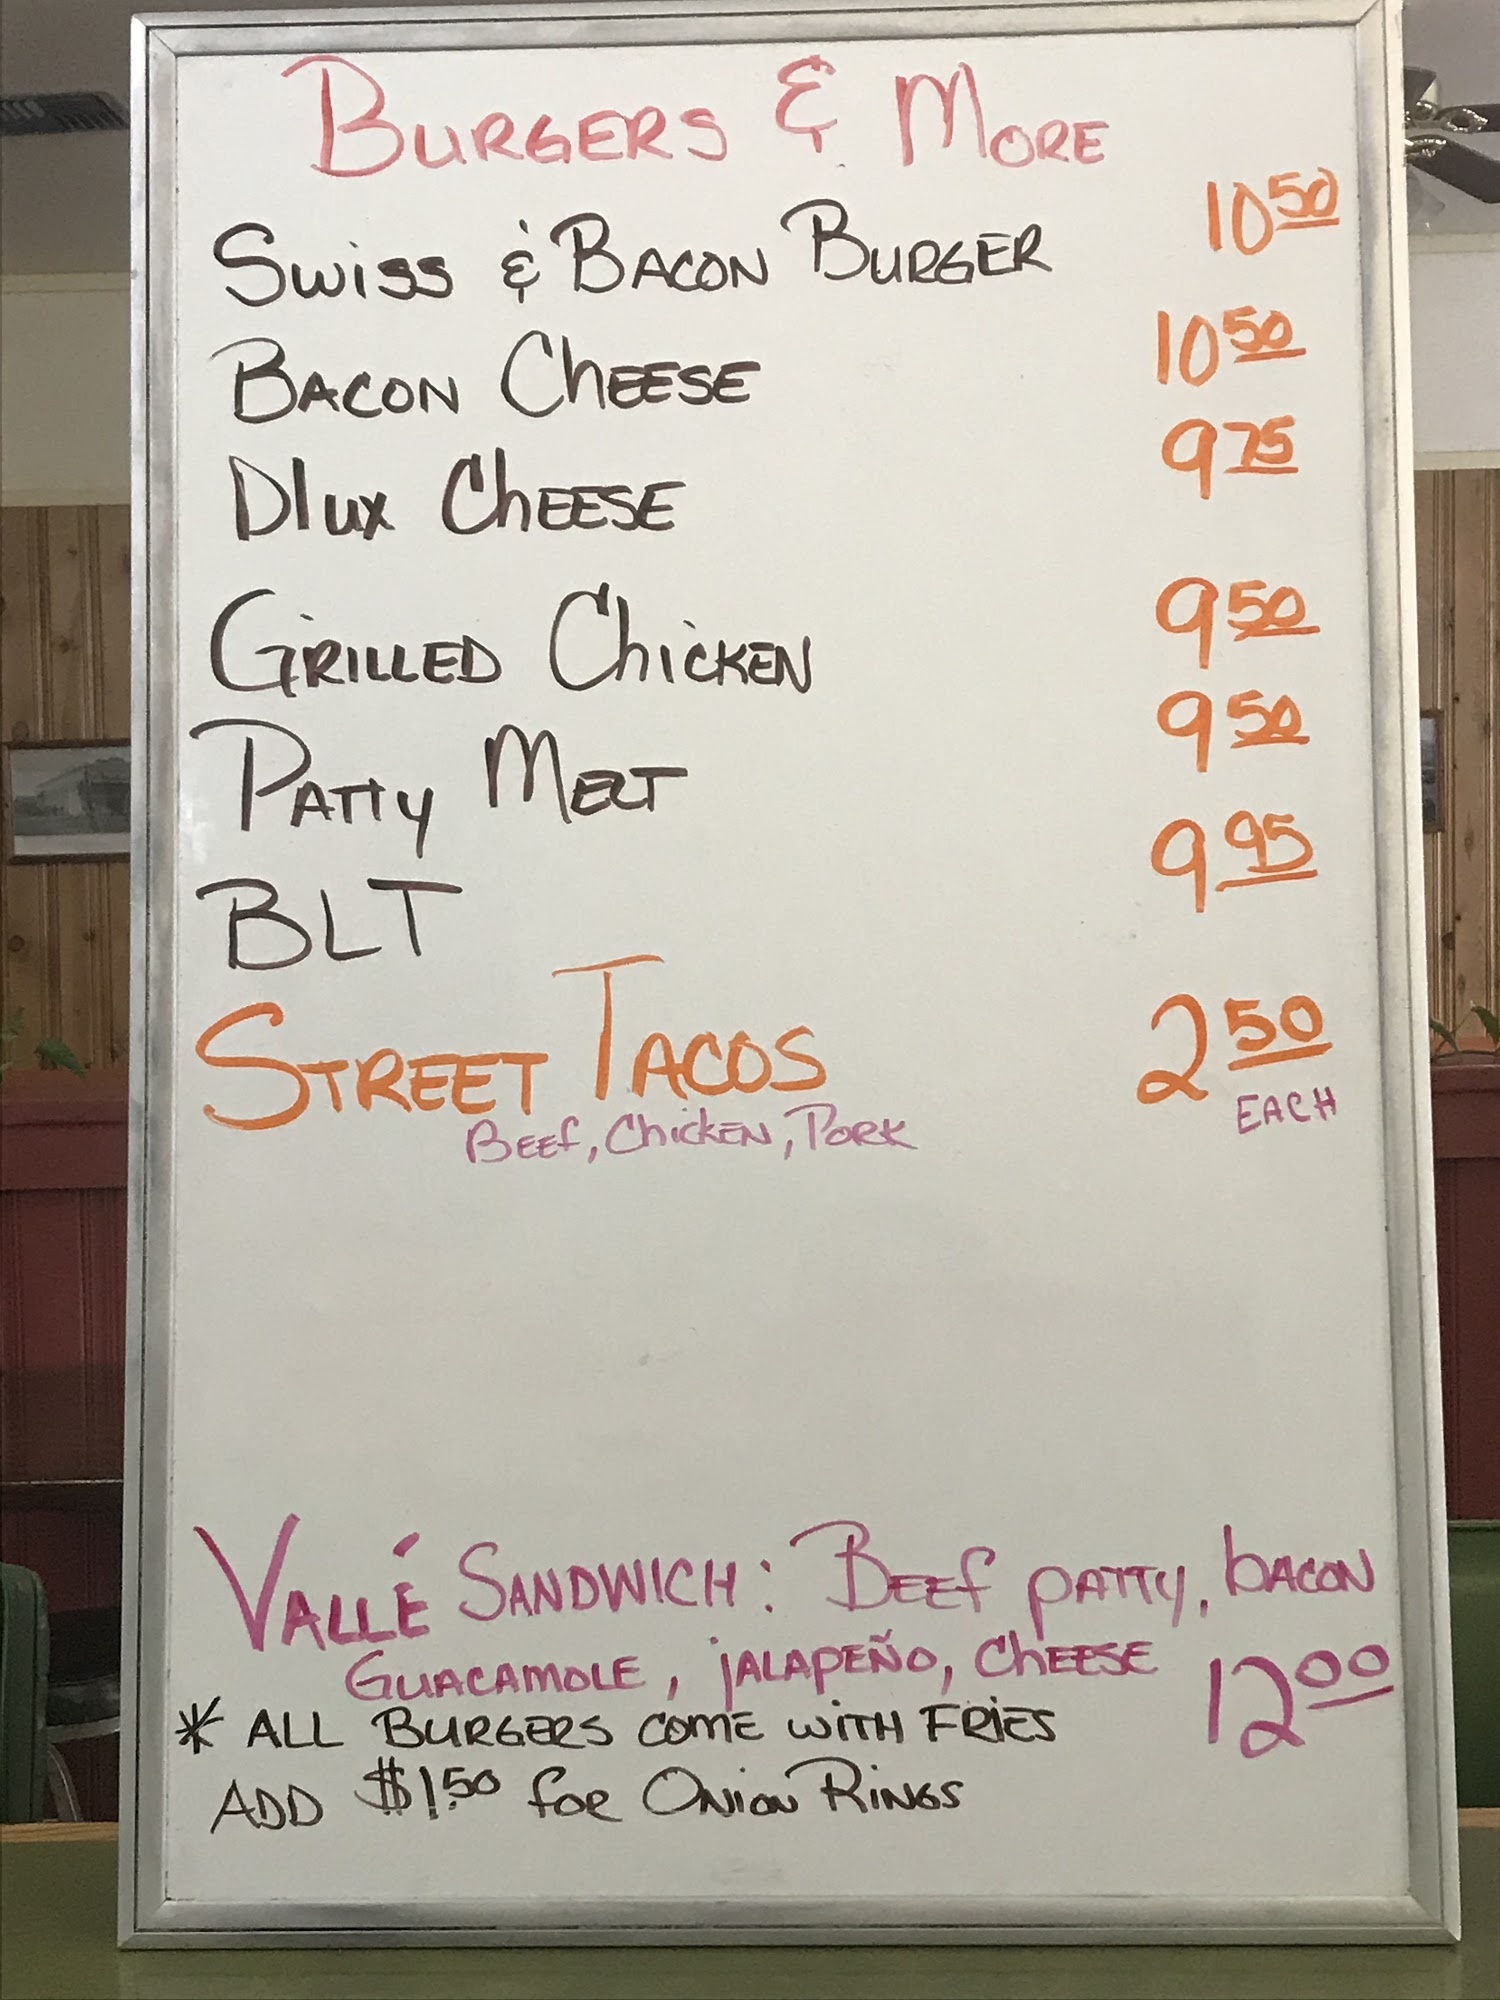 BURGERS & MORE
SWISS & BACON BURGER 10 50
BACON CHEESE 10 50
Dlux CHEESE 9 75
GRILLED CHICKEN 9 50
PATTY MELT 9 50
BLT 9 95
STREET TACOS 2 50
BEEF, CHICKEN, PORK EACH
VALLÉ SANDWICH: BEEF PATTY, BACON
GUACAMOLE, JALAPEÑO, CHEESE 12 00
* ALL BURGERS COME WITH FRIES
ADD $1.50 for ONION RINGS